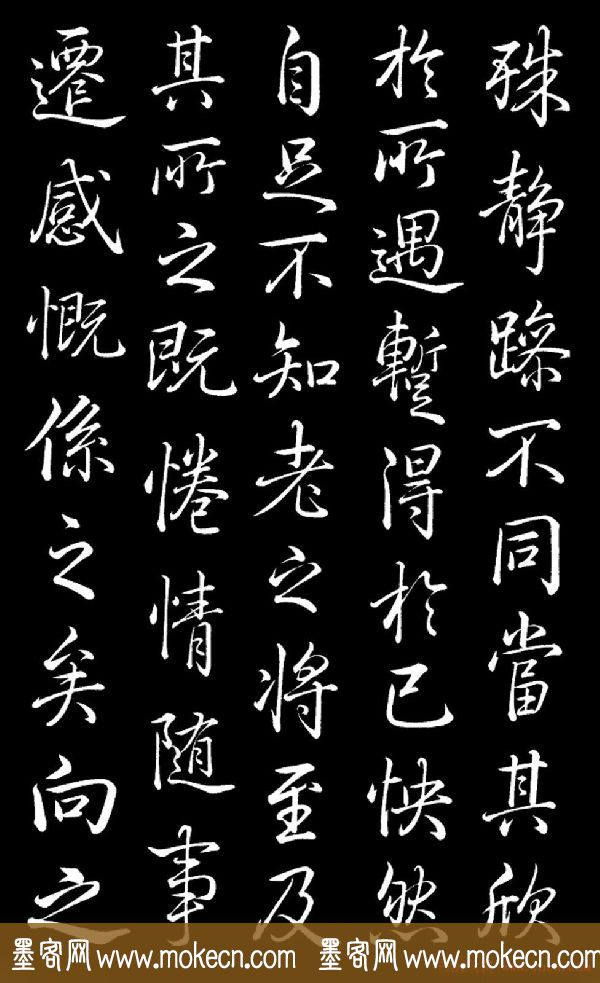 殊静躁不同當其欣
於所遇蹔得於己怏然
自足不知老之將至及
其所之既惓情随事
遷感慨係之矣向之
墨客网 www.mokecn.com 墨客网 www.mokecn.com